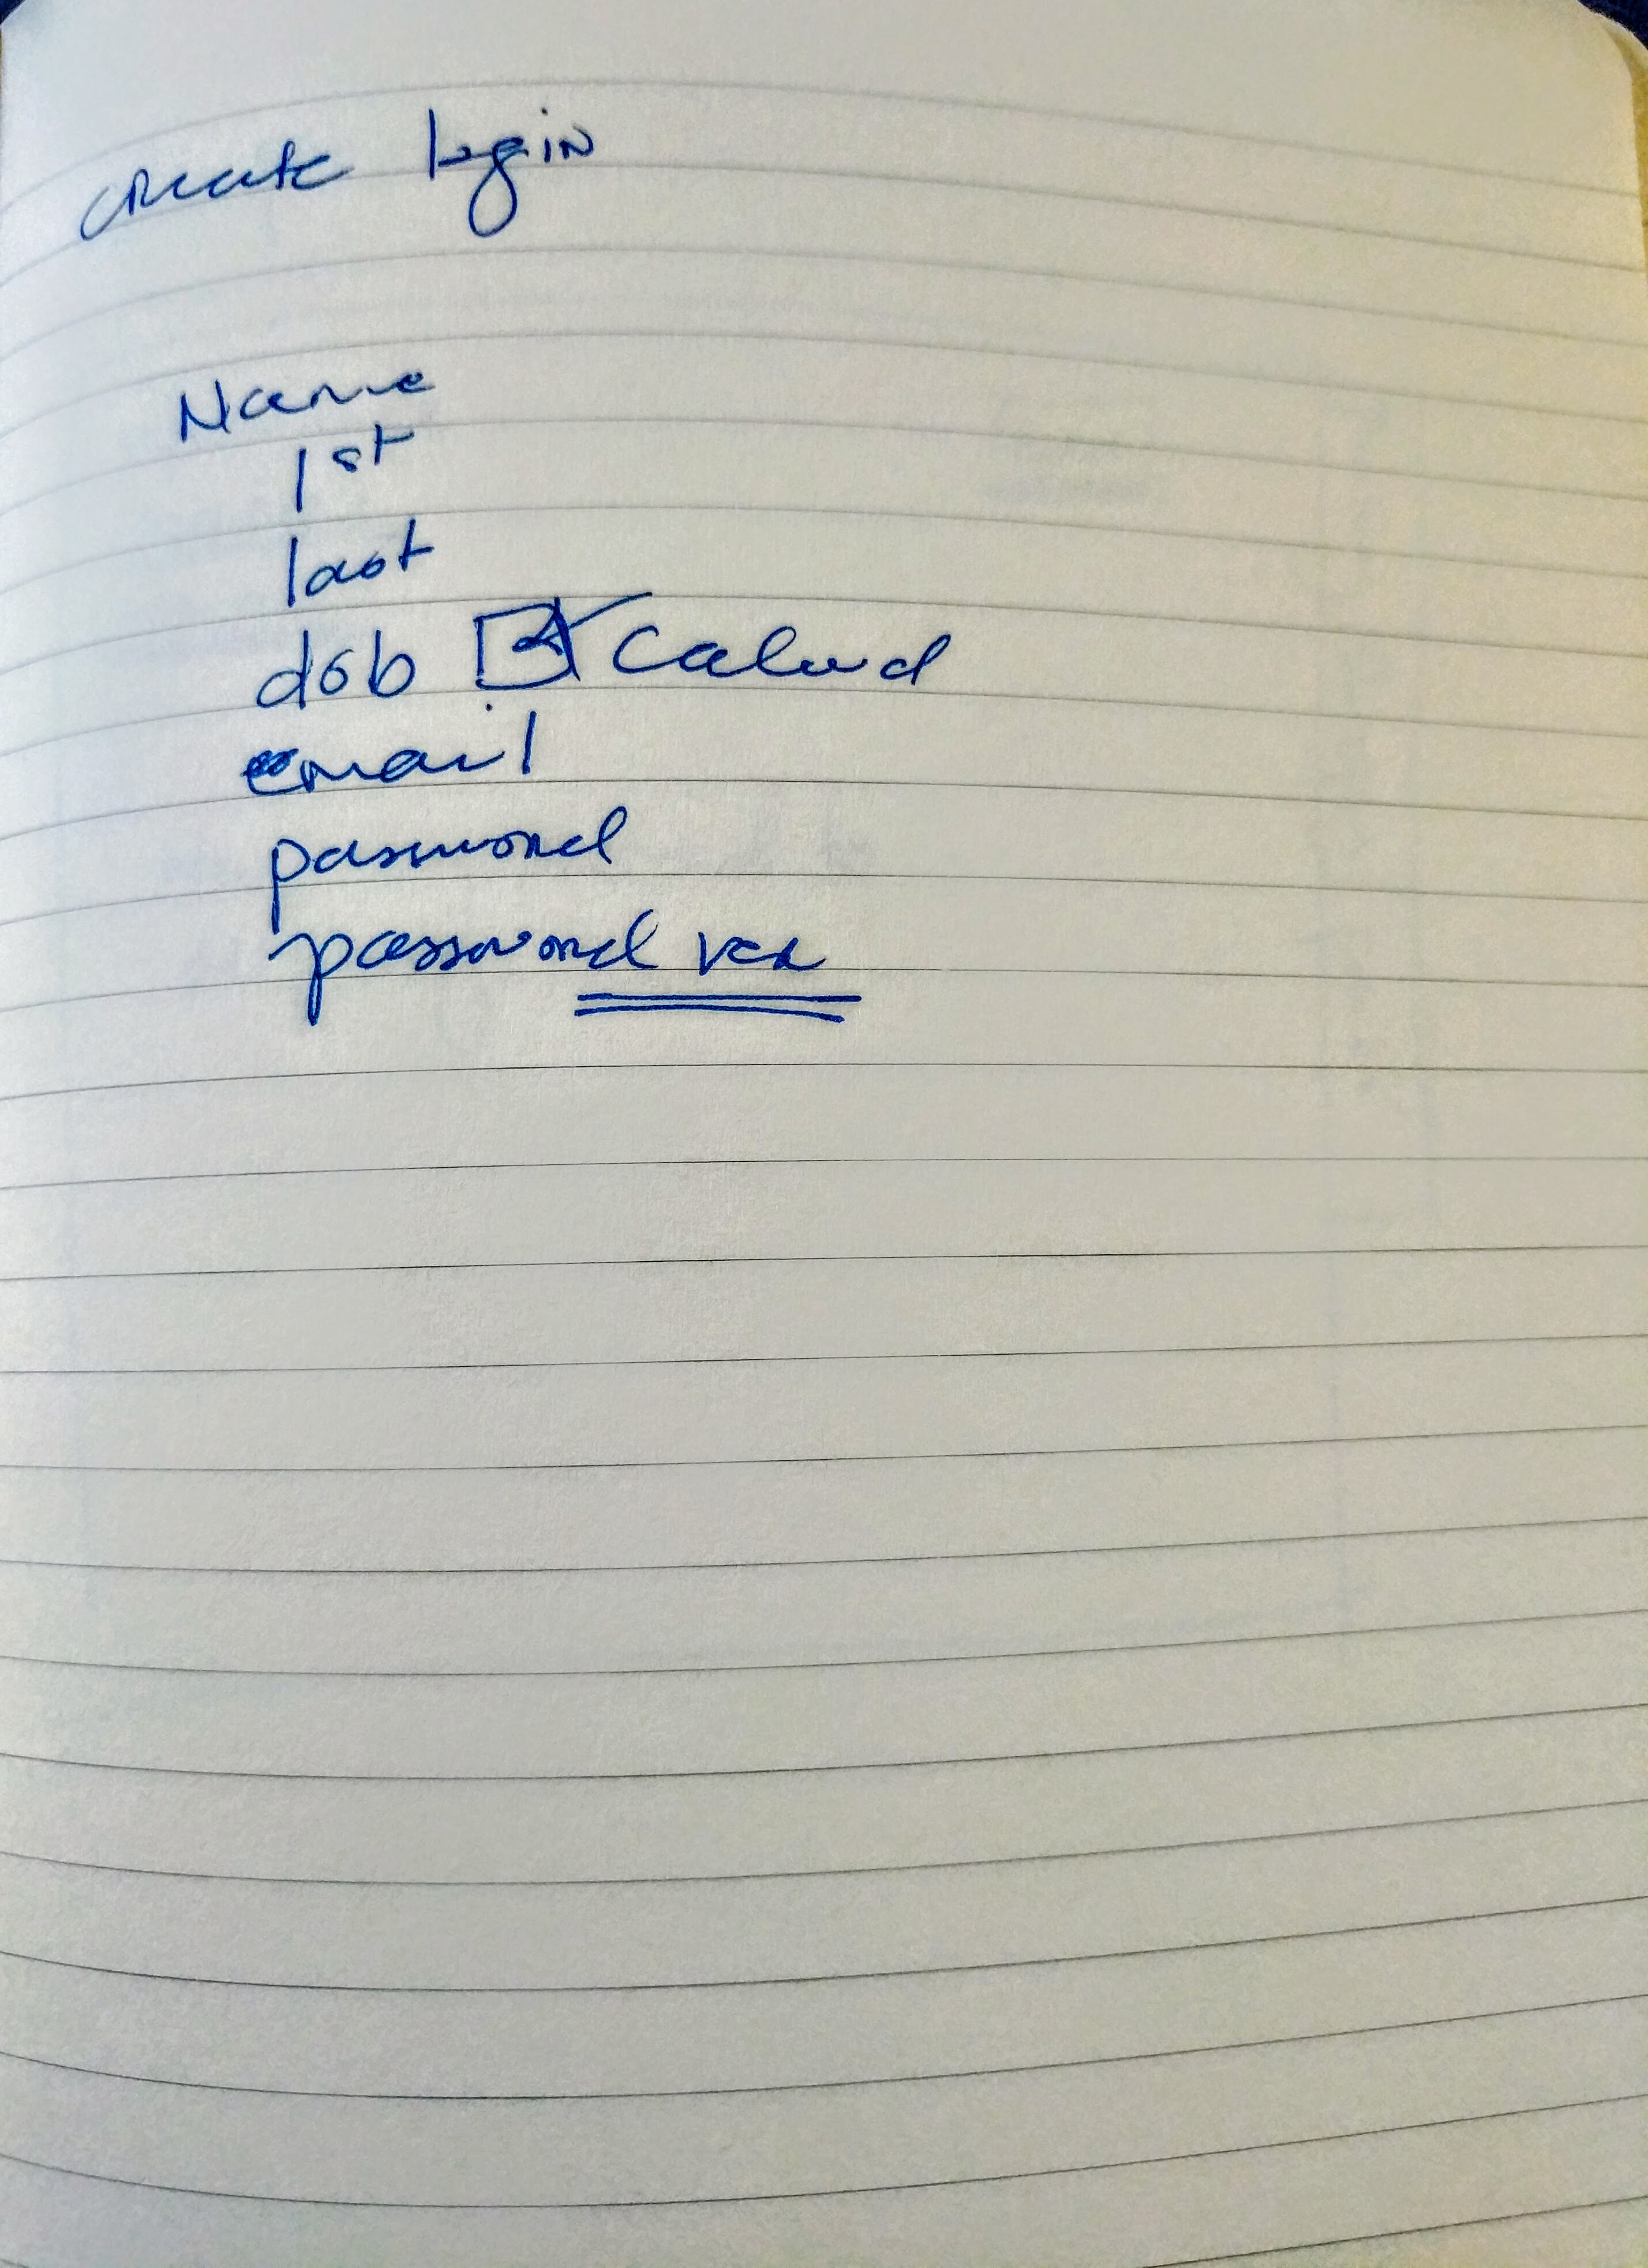 create login
Name
1st
last
dob calend
email
password
password ver